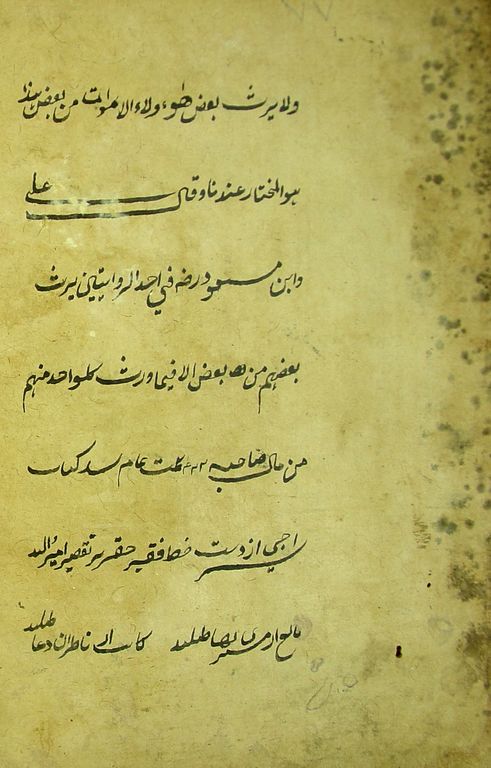 ولا يرث بعض هؤلاء الاموات من بعض هذا
هو المختار عندنا وقال علي
وابن مسعود رضه في احد الروايتين يرث
بعضهم من بعض الا فيما ورث كلواحد منهم
من مال صاحبه تمت تمام شد كتاب
سراجي از دست خط فقير حقير پر تقصير امير الله
كاتب از ناظران دعا طلبد